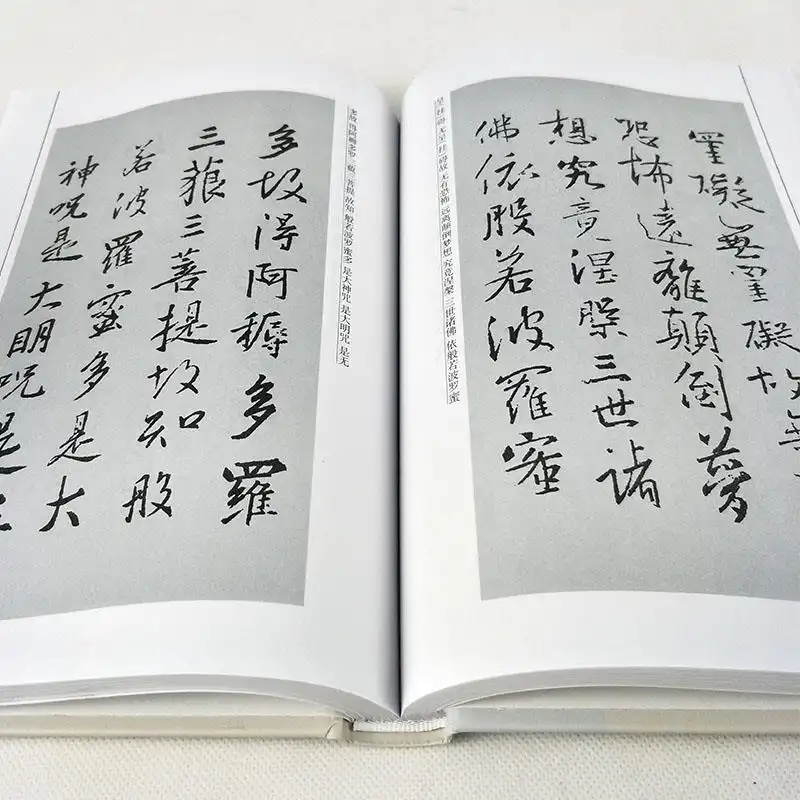 罣礙無罣礙故無
恐怖遠離顛倒夢
想究竟涅槃三世諸
佛依般若波羅蜜
挂碍 无 挂碍故 无有恐怖 远离颠倒梦想 究竟涅槃 三世诸佛 依般若波罗蜜
多故 得阿耨多罗三藐三菩提 故知 般若波罗蜜多 是大神咒 是大明咒 是无
多故得阿耨多羅
三藐三菩提故知般
若波羅蜜多是大
神呪是大明呪是